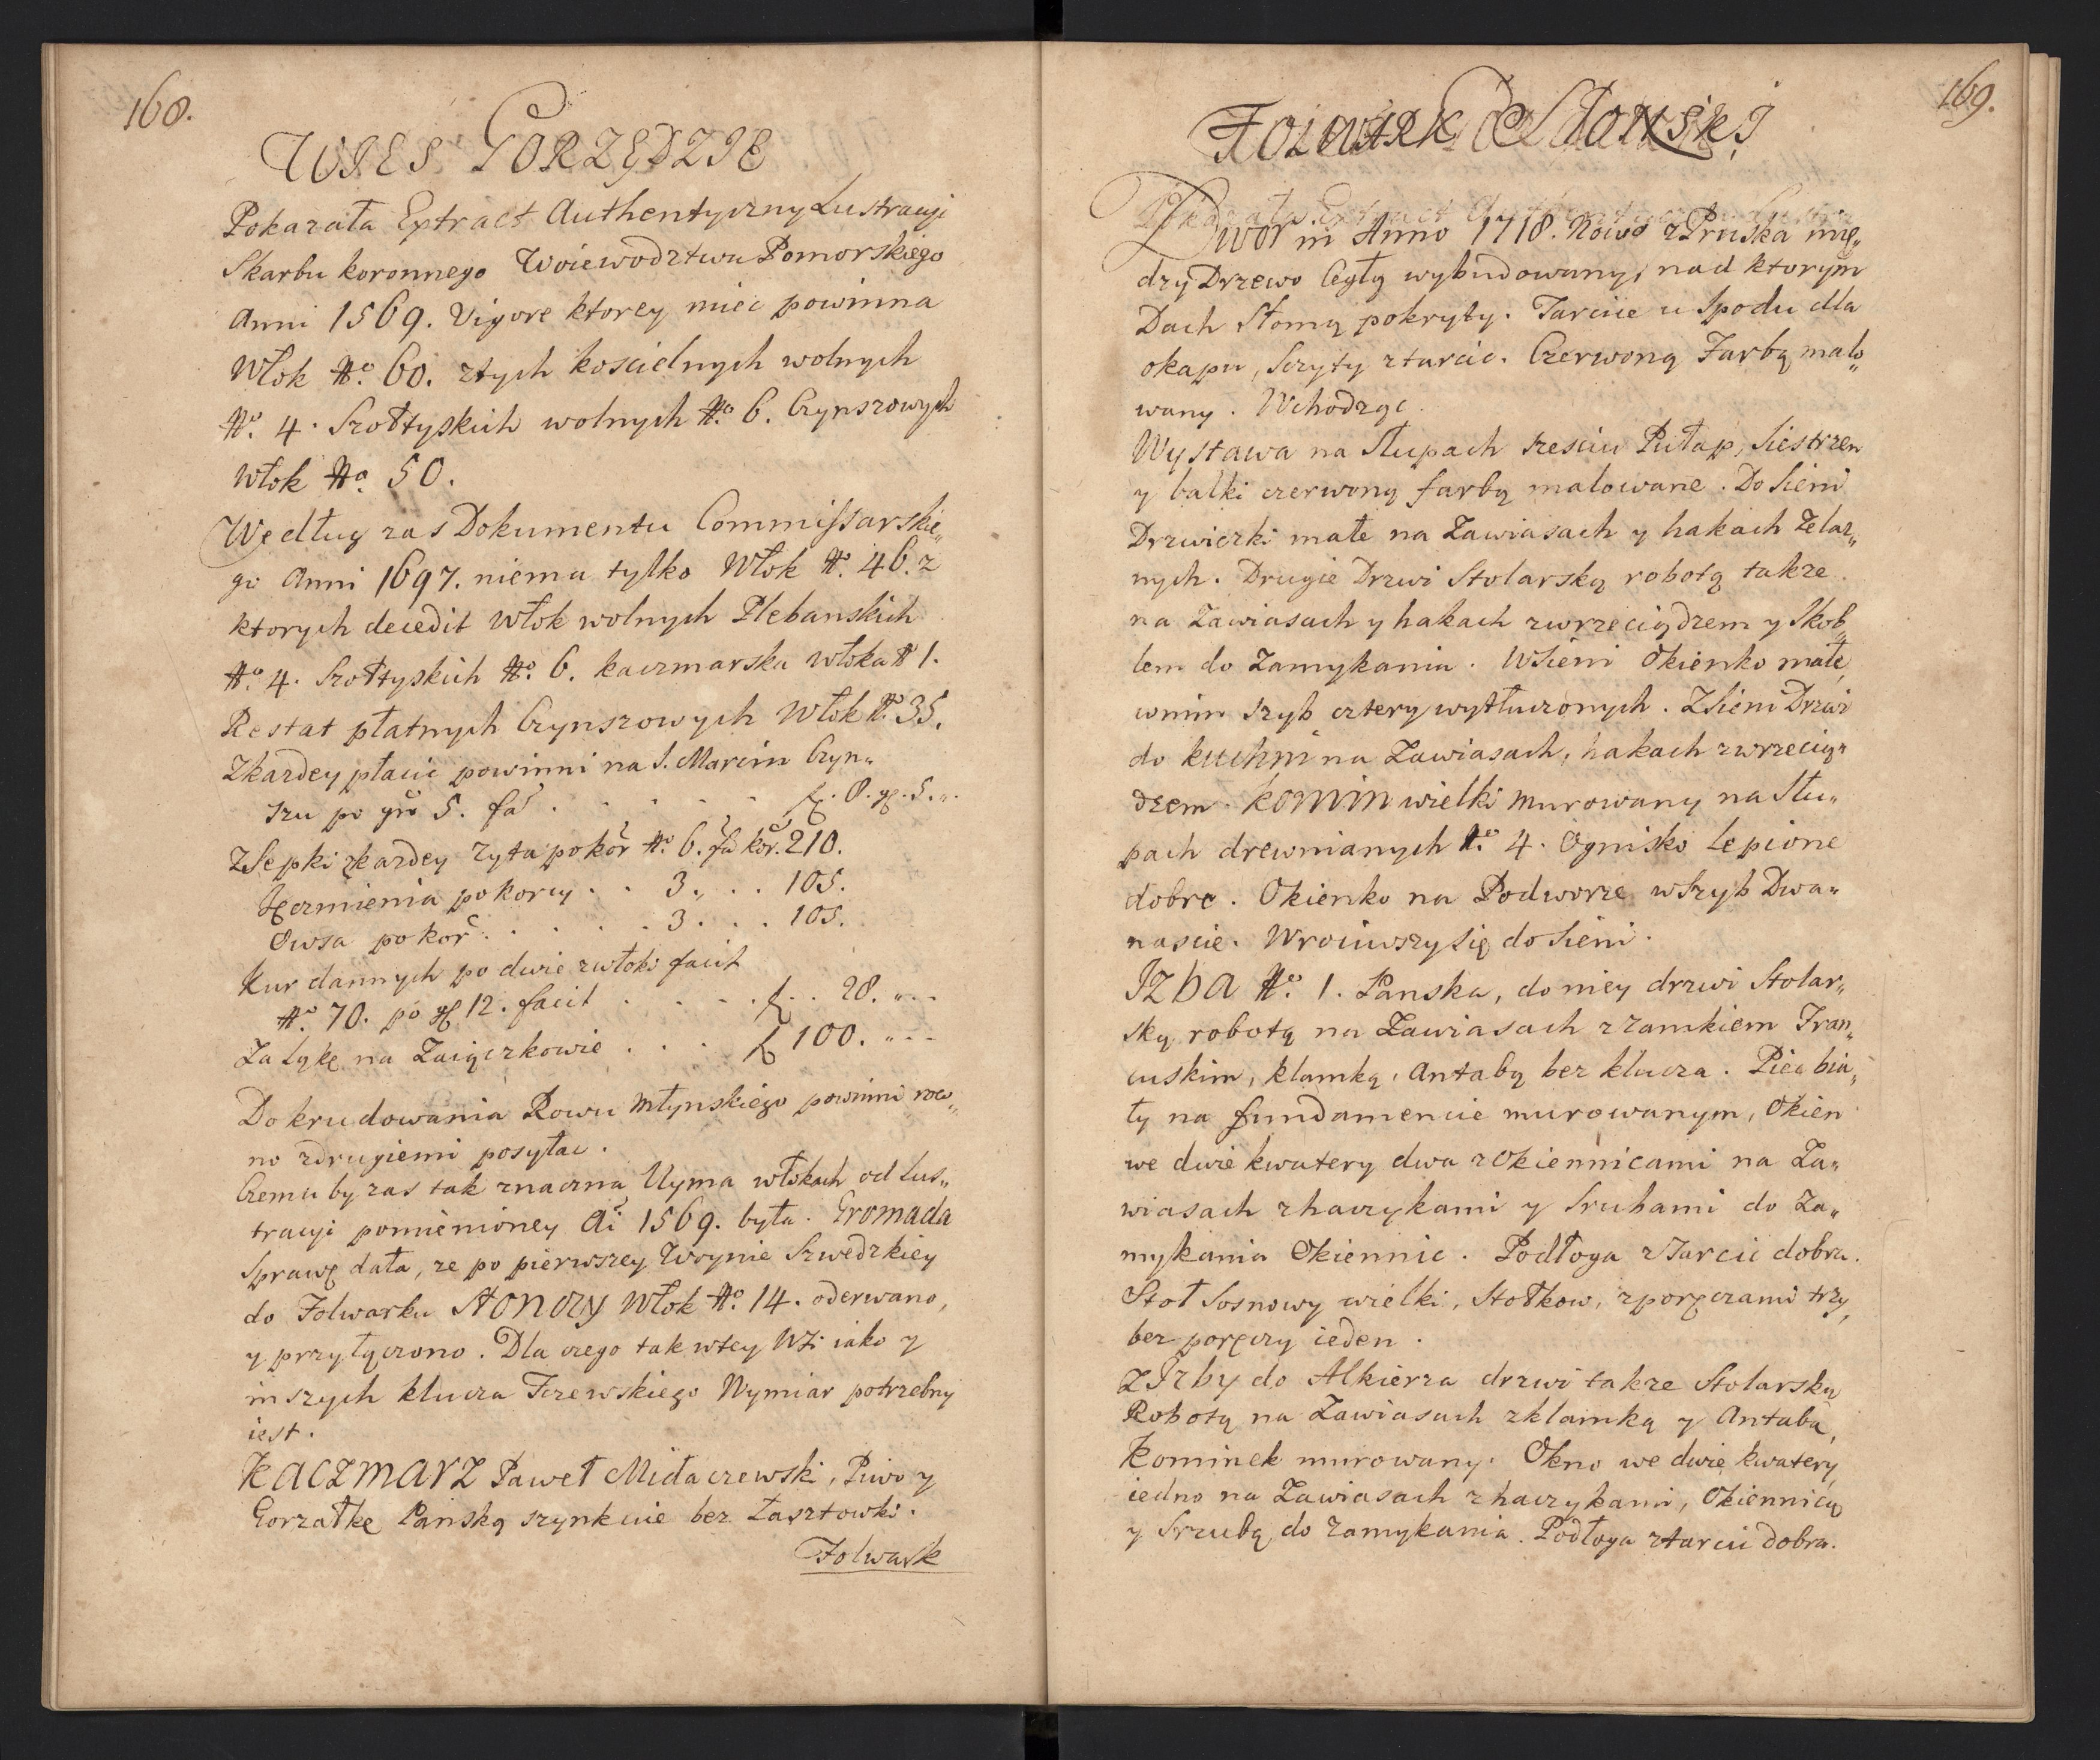 168.
WIES GORZĘDZIE
Pokazała Extract Authentyczny Lustracyi
Skarbu koronnego Woiewodztwa Pomorskiego
Anni 1569. Vigore ktorey miec powinna
Włok No. 60. ztych koscielnych wolnych
No. 4. Szołtyskich wolnych No. 6. Czynszowych
Włok No. 50.
Według zas Dokumentu Commissarskie„
go Anni 1697. niema tylko Włok No. 46. z
ktorych decedit włok wolnych Plebanskich
No. 4. Szołtyskich No. 6. kaczmarska włoka No 1.
Restat płatnych Czynszowych Włok No. 35.
Zkazdey płacic powinni na S. Marcin Czyn„
szu po gro 5. fac . . . . . f. 8. gr. 5. „.
ZSepki zkazdey zyta po kor No. 6. fa kor. 210.
Jęczmienia po korcy . . 3. „ . . 105.
Owsa po kor . . . . . 3 . . . 105.
Kur dannych po dwie zwłoki facit
No. 70. po gr 12. facit . . . . f. . 28. „ . .
Za Łykę na Zaiączkowie . . . f 100. „ . .
Do krudowania Rowu młynskiego powinni row„
no zdrugiemi posyłac.
Czemu by zas tak znaczna Uyma włokach od Lus„
tracyi pomienioney Ai 1569. była. Gromada
Sprawę dała, ze po pierwszey Woynie Szwedzkiey
do Folwarku Stonczy Włok No. 14. oderwano,
y przyłączono. Dla czego tak wtey Wsi iako y
inszych klucza Tczewskiego Wymiar potrzebny
iest.
KACZMARZ Paweł Miłaczewski, Piwo y
Gorzałkę Panską szynkuie bez Łasztowki.
Folwark
169.
Folwark Stonski
Dwor in Anno 1718. Nowo z Pruska mię„
dzy Drzewo Cegłą wybudowany, nad ktorym
Dach Słomą pokryty. Tarcice u Spodu dla
okapu, Sczyty ztarcic. Czerwoną Farbą malo„
wany. Wchodząc.
Wystawa na Słupach szesciu Pułap, Siestrzen
y balki czerwoną farbą malowane. Do Sieni
Drzwiczki małe na Zawiasach y hakach Zelaz„
nych. Drugie Drzwi Stolarską robotą takze
na Zawiasach y hakach zwrzeciądzem y Skob„
lem do Zamykania. WSieni Okienko małe,
wnim Szyb cztery wytłuczonych. ZSieni Drzwi
do kuchni na Zawiasach, hakach zwrzecią„
dzem. KOMIN wielki murowany na Słu„
pach drewnianych No. 4. Ognisko Lepione
dobre. Okienko na Podworze wSzyb Dwa„
nascie. Wrociwszy się do Sieni.
IZBA No. 1. Panska, do niey drzwi Stolar„
ską robotą na Zawiasach zzamkiem Fran„
cuskim, klamką, Antabą bez klucza. Piec bia„
ły na fundamencie murowanym, Okien
we dwie kwatery dwa zOkiennicami na Za„
wiasach zhaczykami y Srubami do Za„
mykania Okiennic. Podłoga zTarcic dobra.
Stoł Sosnowy wielki, Stołkow, zporęczami trzy,
bez poręczy ieden.
ZIzby do Alkierza drzwi takze Stolarską
Robotą na Zawiasach zklamką y Antabą,
Kominek murowany. Okno we dwie kwatery
iedno na Zawiasach zhaczykami, Okiennicą
y Srzubą do zamykania. Podłoga ztarcic dobra.